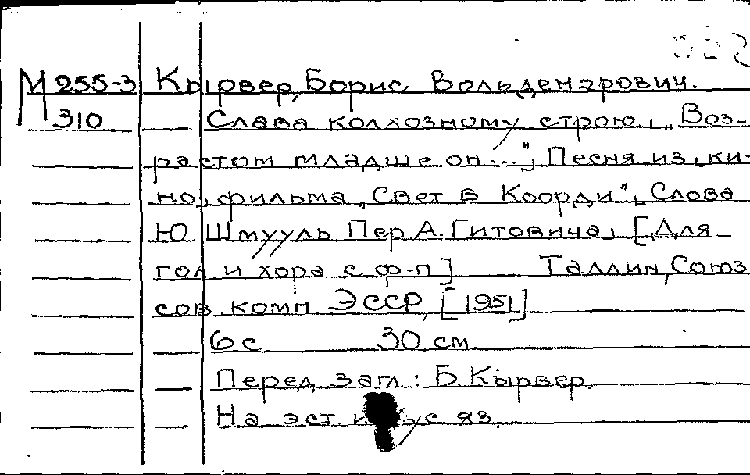 М 255-3 Кырвер, Борис Вольдемарович.
310 Слава колхозному строю. „Воз-
растом младше он...", Песня из ки-
нофильма „Свет в Коорди". Слова
Ю Шмууль Пер А. Гитовича, [Для
гол и хора с ф-п] Таллин, Союз
сов комп ЭССР, [1951]
6 с 30 см
Перед загл: Б. Кырвер
На эст яз